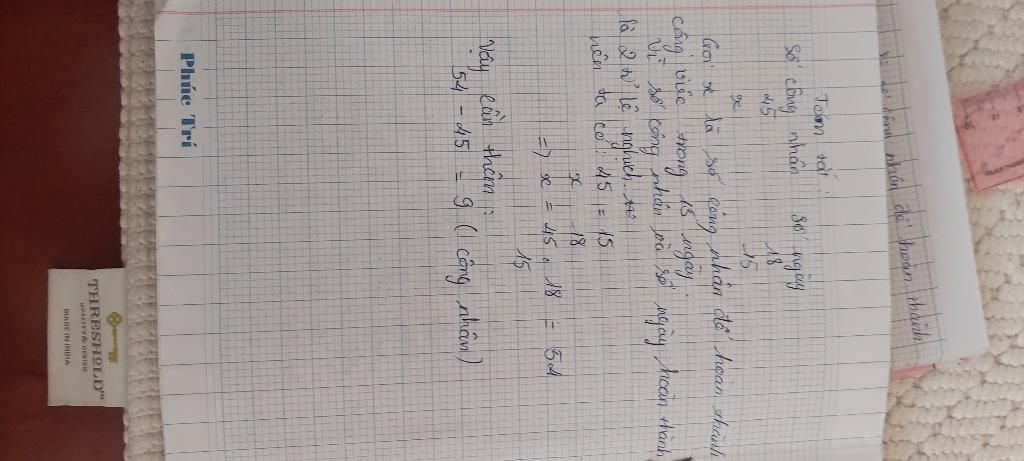 số công nhân để hoàn thành
Tóm tắt:
Số công nhân số ngày
45 18
x 15
Gọi x là số công nhân để hoàn thành
công việc trong 15 ngày.
Vì số công nhân và số ngày hoàn thành
là 2 tỉ lệ nghịch.
nên ta có: 45 = 15
x 18
=> x = 45 . 18 = 54
15
Vậy cần thêm:
54 - 45 = 9 (công nhân)
Phúc Trí
THRESHOLD™
QUALITY & DESIGN
MADE IN INDIA